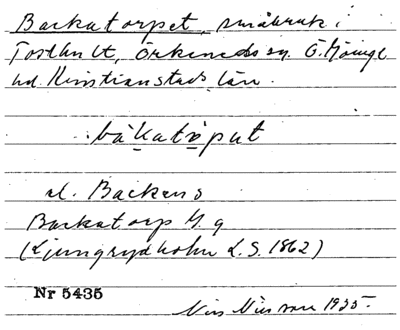 Backatorpet, småbruk i
Tosthult, Örkeneds sn. Ö. Göinge
hd. Kristianstads län.
båkatǫput
al. Backens
Backatorp N. 9
(Ljungrydholm L.S. 1862)
Nr 5435
Nils Nilsson 1935.